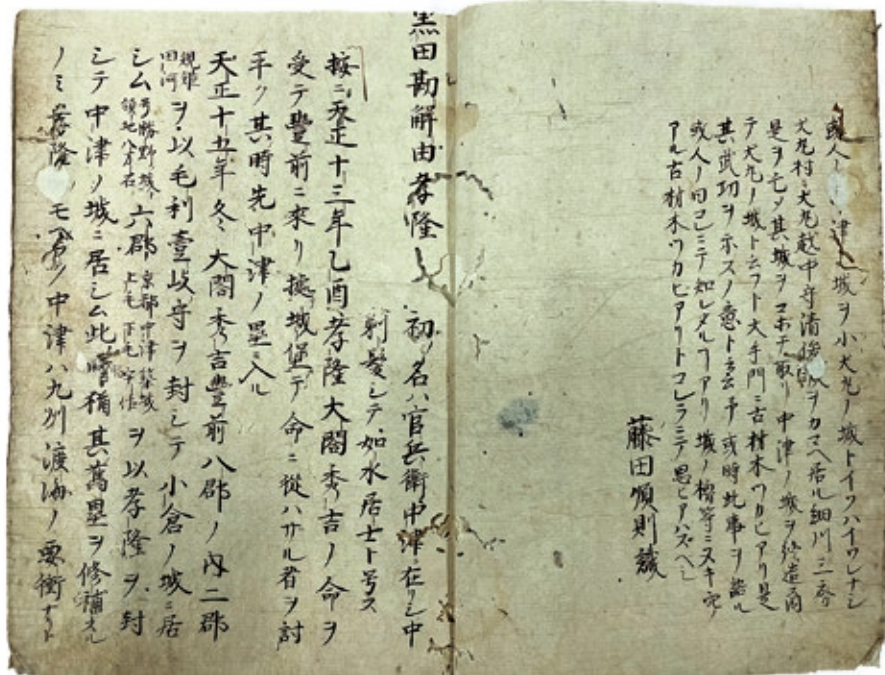 或人ノ津ノ城ヲ小犬丸ノ城トイフハイワレナシ
犬丸村ニ犬丸越中守清俊城ヲカマヘ居ル細川三斎
是ヲモツ其城ヲコホチ取リ中津ノ城ヲ終造爾
テ犬丸ノ城ト云フト大手門ニ古材木ツカヒアリ是
其武功ヲホスノ意ト云云予或時此事ヲ語ル
或人ノ曰コレニテ知レタルアリ城ノ櫓等ニヌキ穴
アル古材木ツカヒアリトコレラニテ思ヒアハスヘシ
藤田順則識
黒田勘解由孝隆 初ノ名ハ官兵衛中津ニ在リシ中
剃髪シテ如水居士ト号ス
按ニ天正十三年乙酉孝隆大閤秀吉ノ命ヲ
受テ豊前ニ來リ據城堡テ命ニ從ハサル者ヲ討
平ク其時先中津ノ塁ニ入ル
天正十五年冬大閤秀吉豊前八郡ノ内二郡
規矩田河ヲ以毛利壹岐守ヲ封シテ小倉ノ城ニ居
シム号勝野城領地八万石六郡京都中津築城上毛下毛宇佐ヲ以孝隆ヲ封
シテ中津ノ城ニ居シム此時稱其舊塁ヲ修補スル
ノミ孝隆ノモ中津ハ九州渡海ノ要衝ナリト